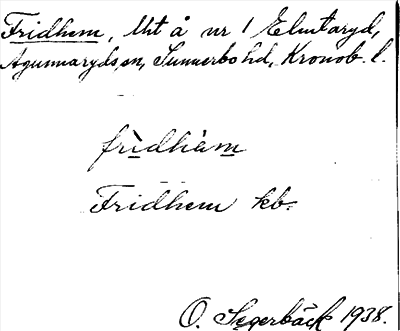 Fridhem, lht å nr 1 Elmtaryd,
Agunnaryds sn, Sunnerbo hd, Kronob. l.
fridhäm
Fridhem kb.
O. Segerbäck 1938.